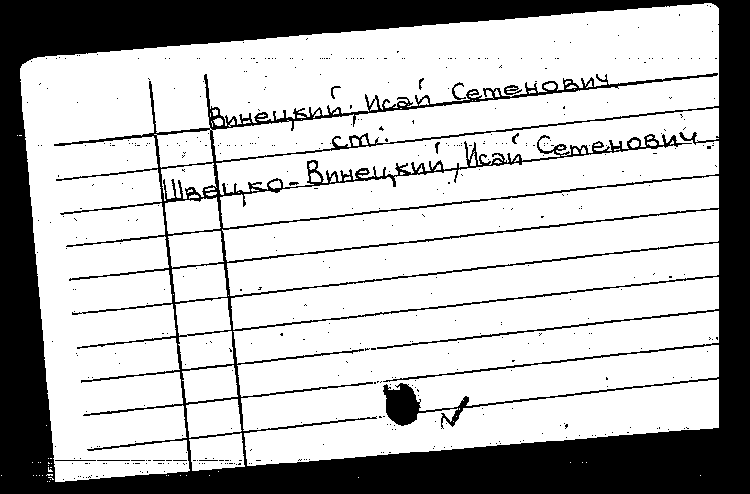 Винецкий, Исай Семенович
см.:
Швецко-Винецкий, Исай Семенович.